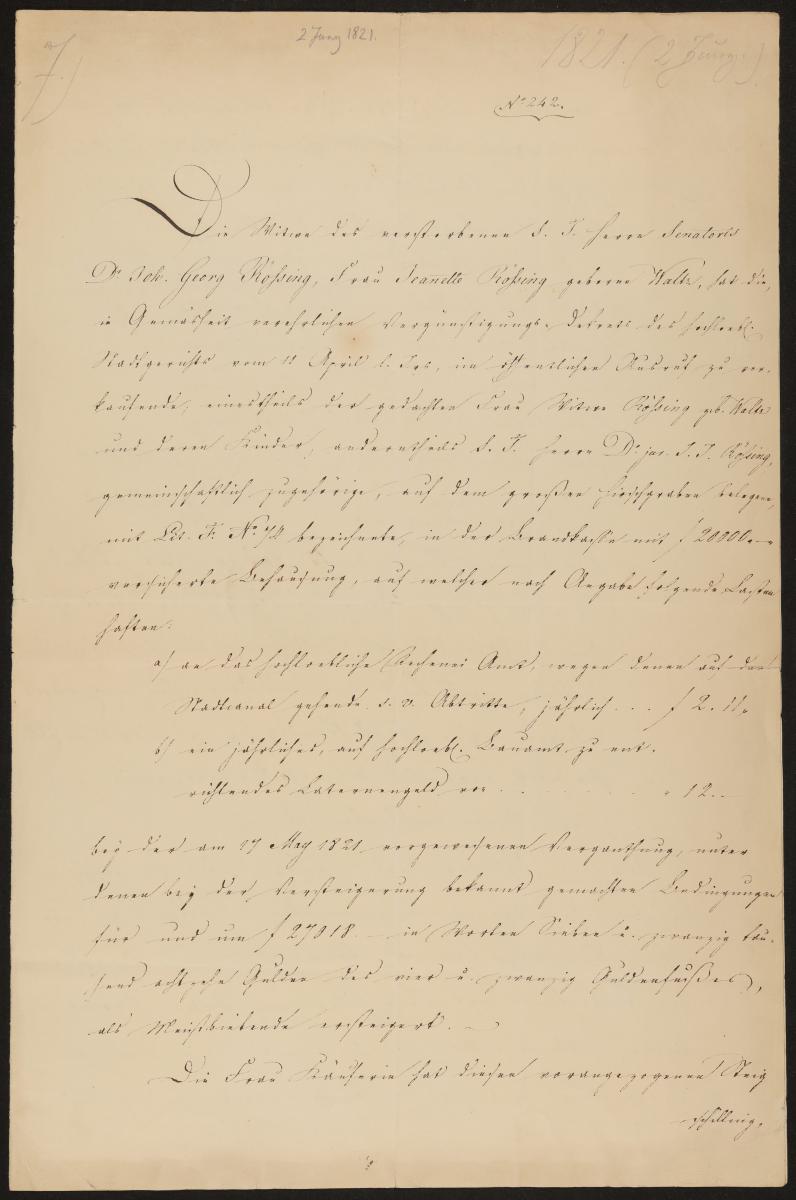 2 Juny 1821.
1821. (2 Juny.)
7.)
No 242.
Die Witwe des verstorbenen S. T. Herrn Senatoris
Dr Joh. Georg Rößing, Frau Jeanette Rößing geborne Waltz, hat die,
in Gemäsheit verehrlichen Vergünstigungs-Dekrets des hochloebl.
Stadtgerichts vom 11 April l. Jrs, im öffentlichen Ausruf zu ver-
kaufende, einestheils der gedachten Frau Witwe Rößing geb. Waltz
und deren Kinder, anderntheils S. T. Herrn Dr jur. J. J. Rößing,
gemeinschaftlich zugehörige, auf dem großen Hirschgraben belegene,
mit Lit. F. No 74 bezeichnete, in der Brandkasse mit f 20000.--
versicherte Behausung, auf welcher nach Angabe folgende Lasten
haften:
a) an das hochloebliche Rechenei Amt, wegen denen auf den
Stadtcanal gehende s. v. Abtritte, jährlich . . . f 2. 11.
b) ein jährliches, auf hochloebl. Bauamt zu ent-
richtendes Laternengeld von . . . . . . . . " 12. --
bey der am 17 May 1821 vorgewesenen Verganthung, unter
denen bey der Versteigerung bekannt gemachten Bedingungen
für und um f 27018. -- in Worten Sieben u. zwanzig tau-
send achtzehn Gulden des vier u. zwanzig Guldenfußes,
als Meistbietende ersteigert. --
Die Frau Käuferin hat diesen vorangezogenen Steig
schilling,